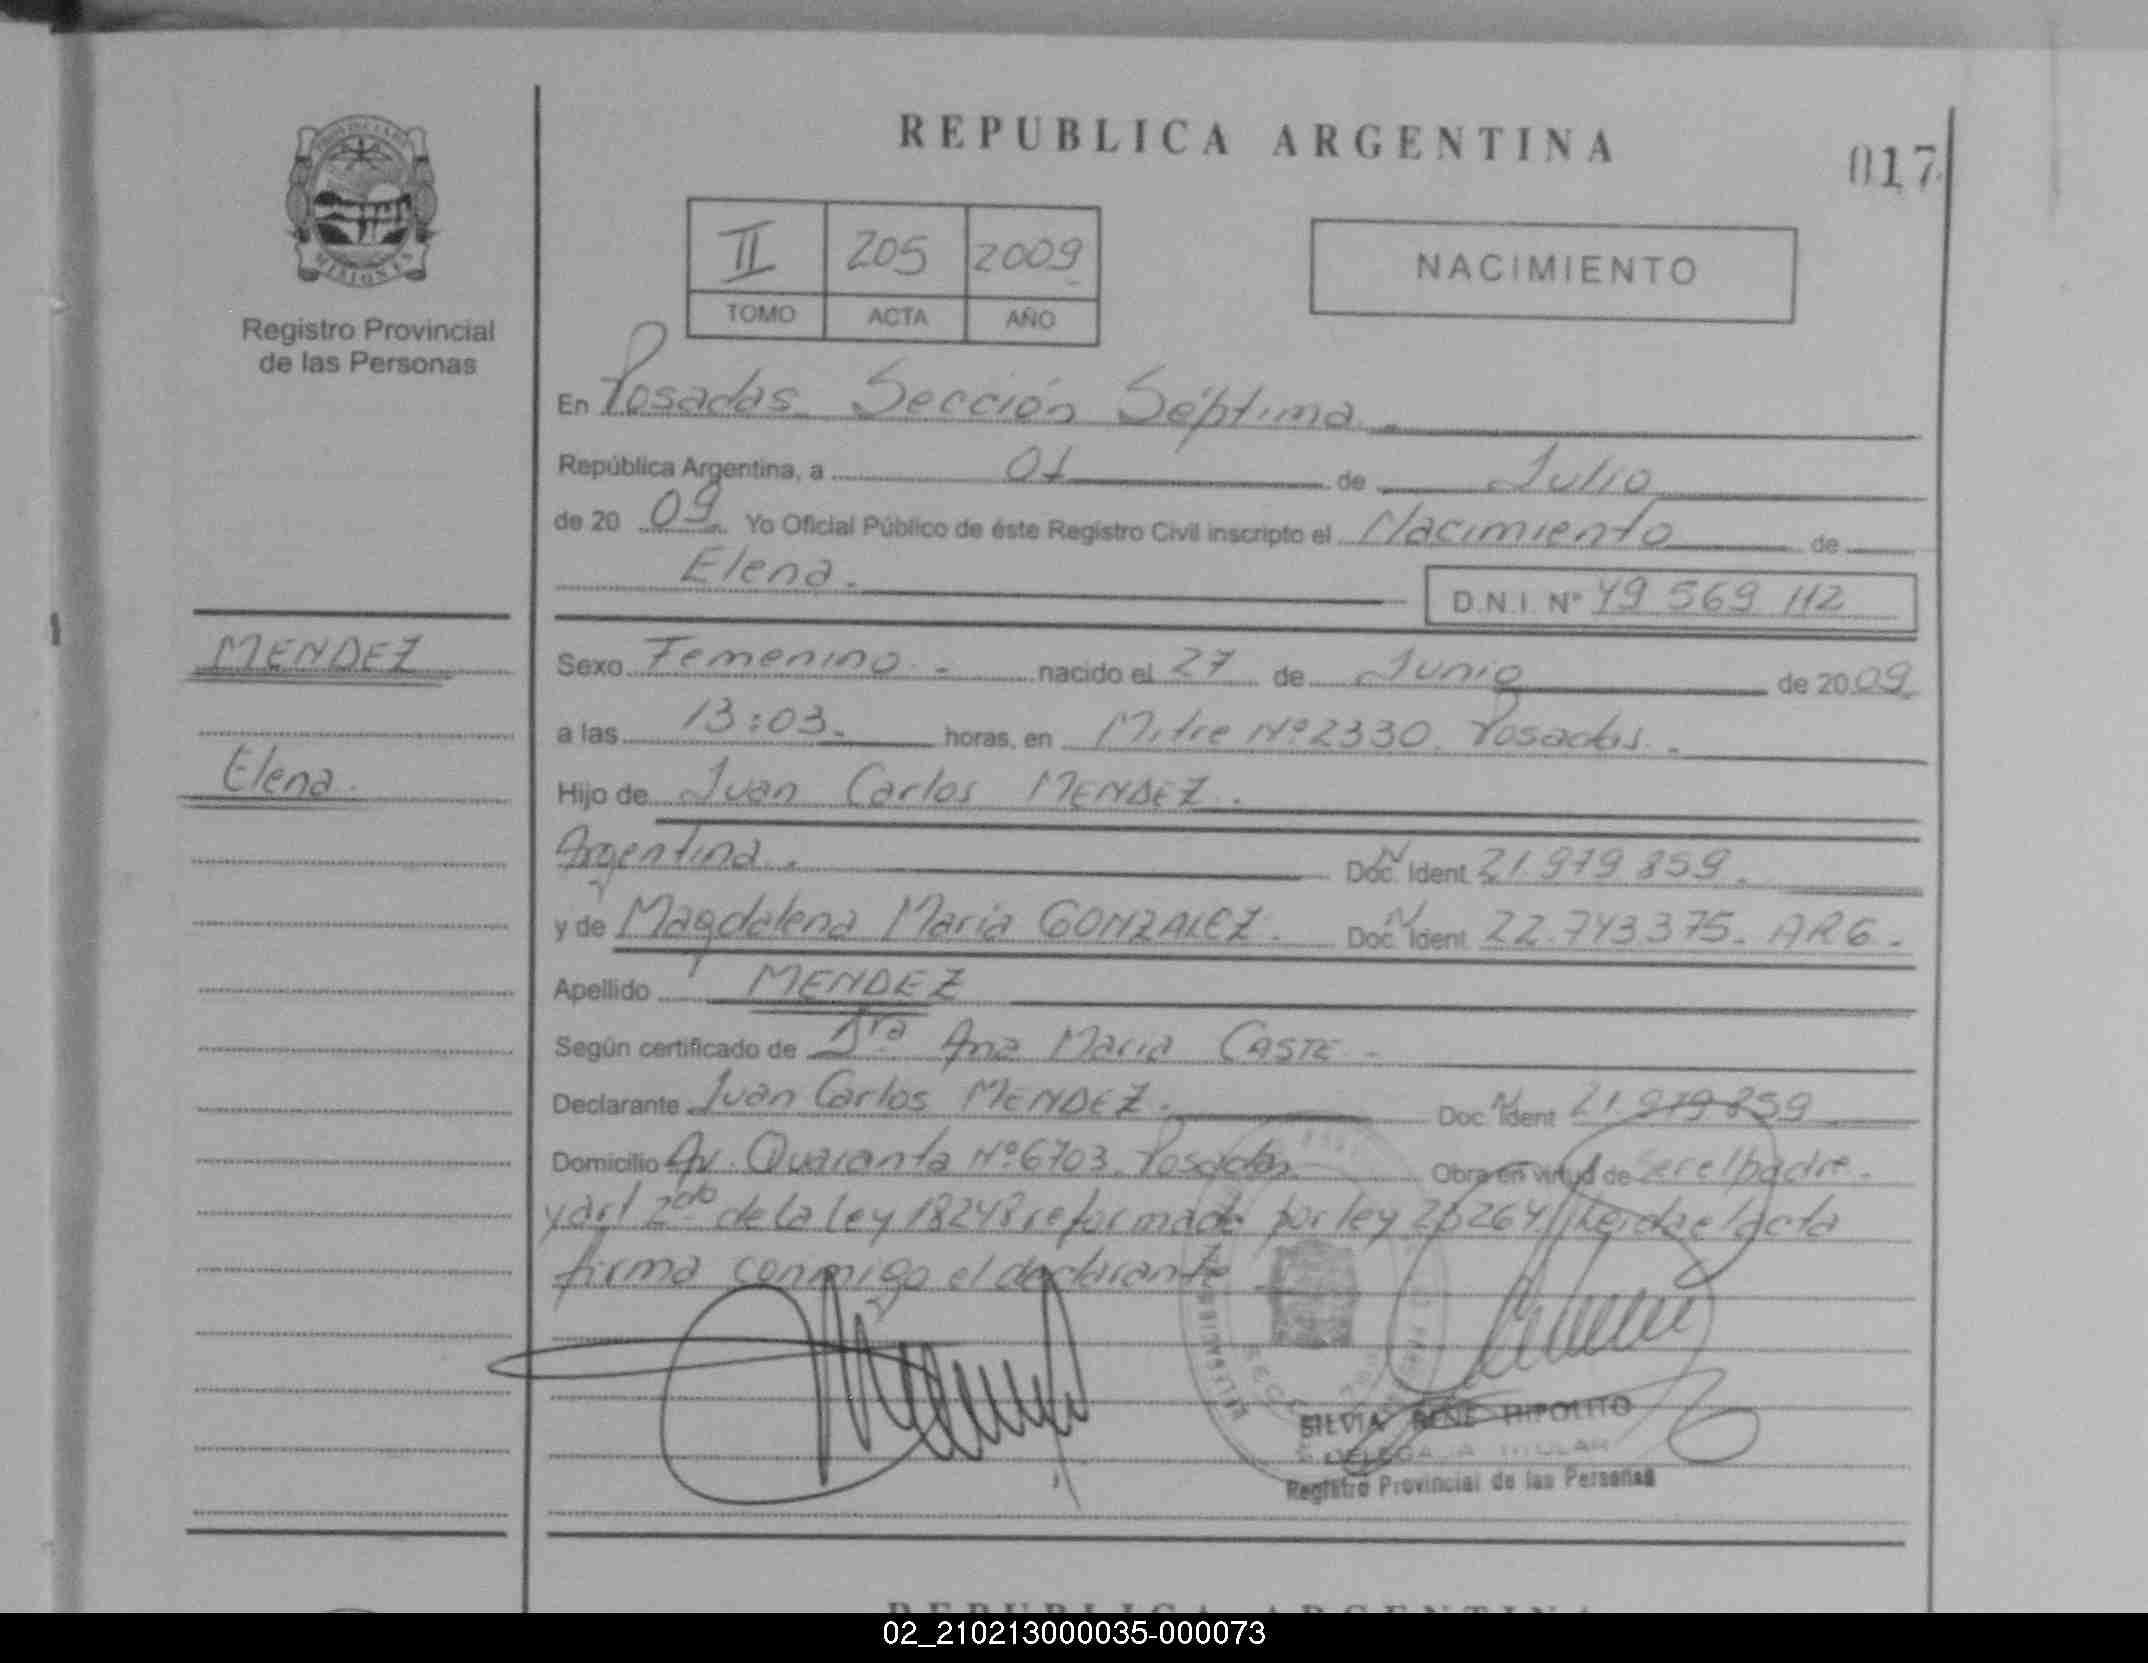 REPUBLICA ARGENTINA
017
PROVINCIA DE
MISIONES
Registro Provincial
de las Personas
II 205 2009
TOMO ACTA AÑO
NACIMIENTO
En Posadas Sección Séptima.
República Argentina, a 01 de Julio
de 2009. Yo Oficial Público de éste Registro Civil inscripto el Nacimiento de
Elena.
D.N.I. Nº 49 569 112
MENDEZ
Elena.
Sexo Femenino.- nacido el 27 de Junio de 2009.
a las 13:03. horas, en Mitre Nº 2330. Posadas.
Hijo de Juan Carlos MENDEZ.
Argentina. Doc. N Ident 21.979.859.
y de Magdalena Maria GONZALEZ. Doc. N Ident 22.743.375. ARG.
Apellido MENDEZ
Según certificado de Dra Ana Maria CASTE.-
Declarante Juan Carlos MENDEZ. Doc N Ident 21.979.859
Domicilio Av. Quaranta Nº 6703. Posadas. Obra en virtud de ser el padre.
y art 2do de la Ley 18248 reformada por ley 26264// Leída el acta
firma conmigo el declarante
SILVIA RENE HIPOLITO
DELEGADA TITULAR
Registro Provincial de las Personas
REPUBLICA ARGENTINA
02_210213000035-000073